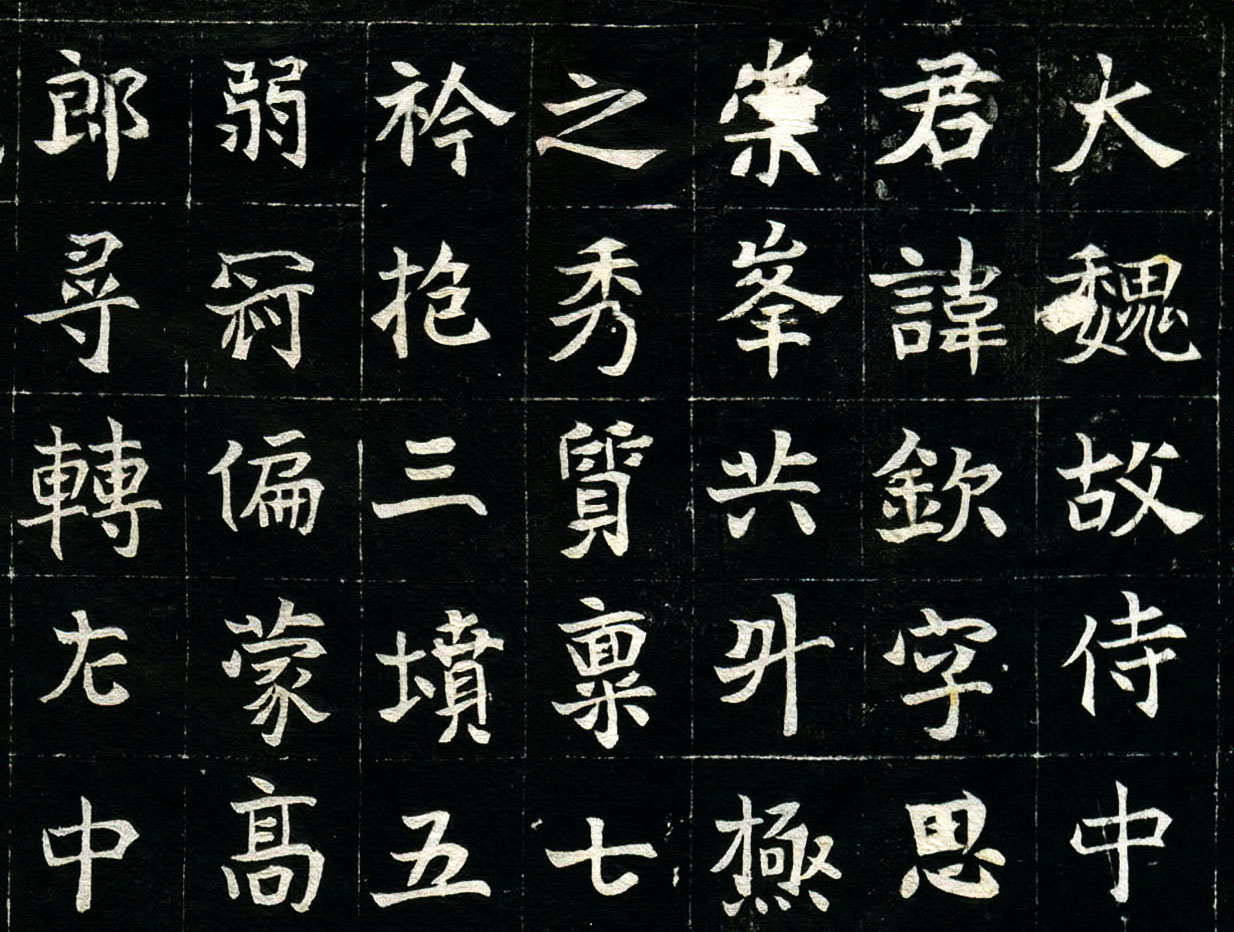 大魏故侍中
君諱欽字思
崇峯共斗極
之秀質稟七
衿抱三墳五
弱冠偏蒙高
郎尋轉左中